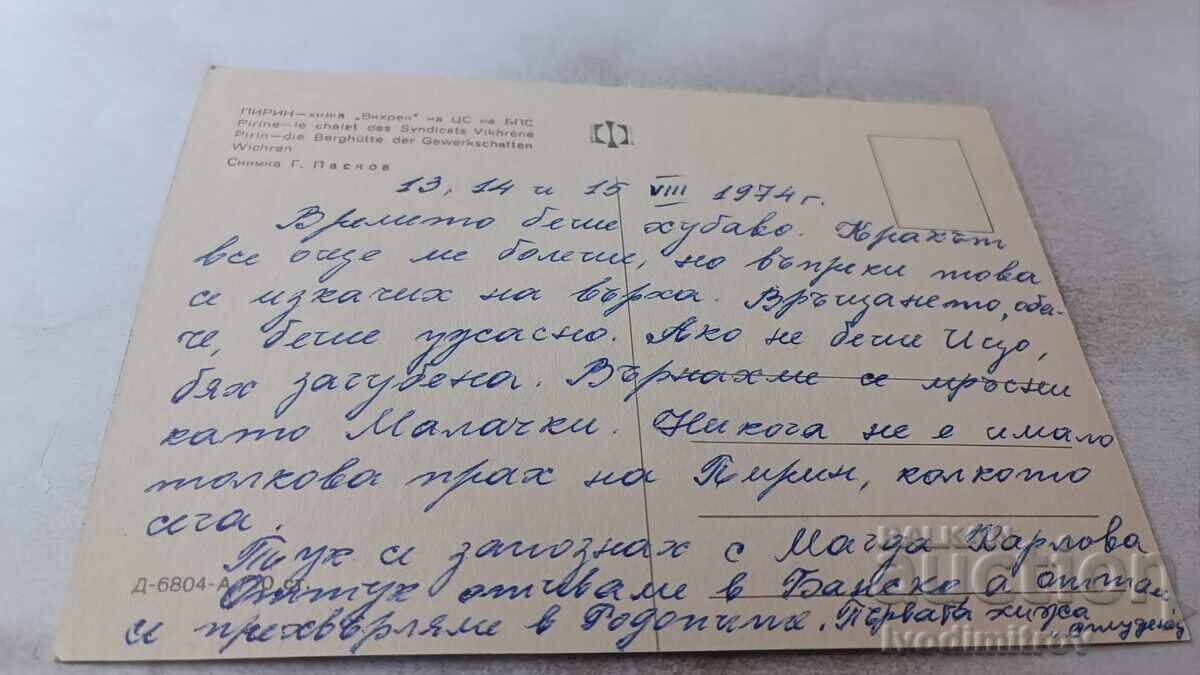 ПИРИН—хижа „Вихрен" на ЦС на БПС
Pirine—le chalet des Syndicats Vikhrène
Pirin—die Berghütte der Gewerkschaften
Wichren
Снимка Г. Пасков
13, 14 и 15 VIII 1974 г.
Времето беше хубаво. Кракът
все още ме болеше, но въпреки това
се изкачих на върха. Връщането, оба-
че, беше ужасно. Ако не беше Ицо,
бях загубена. Върнахме се мръсни
като Малачки. Никога не е имало
толкова прах на Пирин, колкото
сега.
Тук се запознах с Магда Карлова
Оттук отиваме в Банско, а оттам
Д-6804-А 20 ст.
се прехвърляме в Родопите. Първата хижа
„Студенец"
BALKAN
auction
ivodimitrov